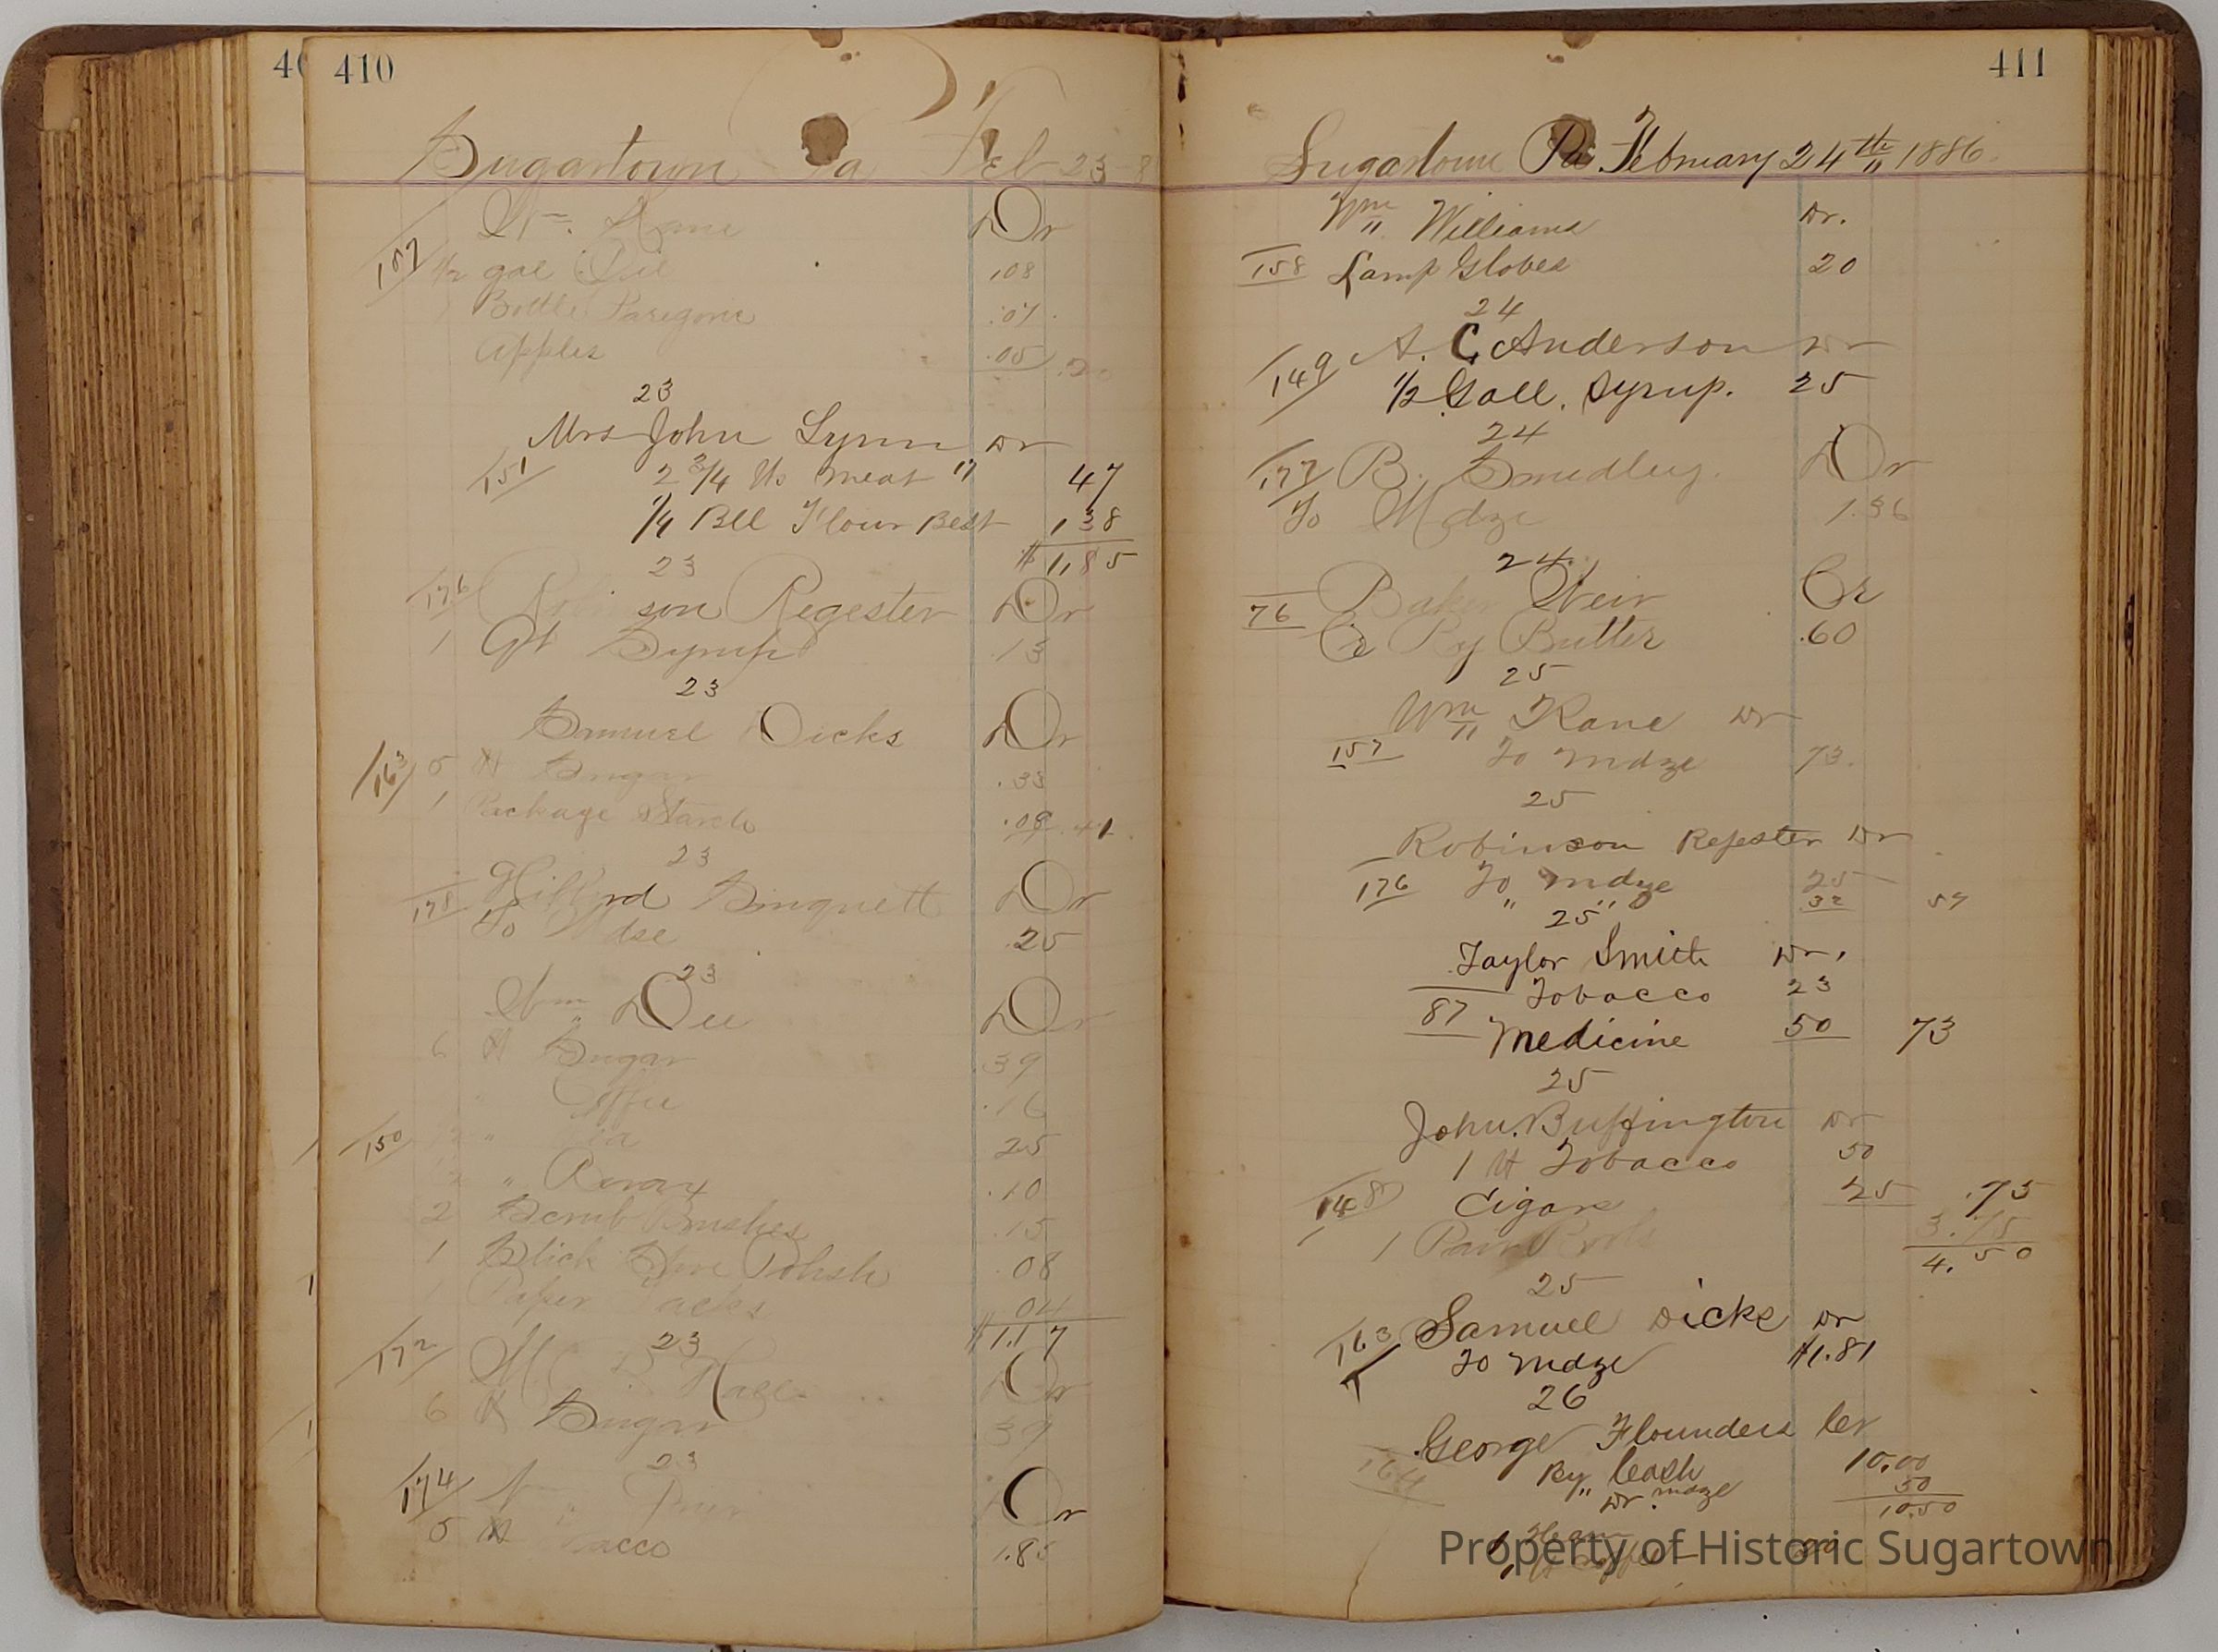 410
Sugartown Pa Feb 23
Wm. Kane Dr
157 1/2 gal Oil .08
Bottle Paregoric .07
Apples .05 .20
23
Mrs John Lynn Dr
151 2 3/4 lb meat 17 47
1/4 Bll Flour Best 1 38
$ 1,85
23
176 Robinson Regester Dr
1 Qt Syrup .13
23
Samuel Dicks Dr
163 5 lb Sugar .33
1 Package Starch .08 .41
23
175 Dr
To Mdse .25
23
Wm Dee Dr
6 lb Sugar 39
" Coffee .16
150 " Tea 25
" Borax .10
2 Scrub Brushes .15
1 Stick Stove Polish 08
1 Paper Tacks 04
$1.17
23
172 Dr
6 lb Sugar 39
23
174 Dr
5 lb 1.85
411
Sugartown Pa. February 24th 1886
Wm Williams Dr.
158 Lamp Globes 20
24
149 A. C. Anderson Dr
1/2 Gall. Syrup. 25
24
177 B. Smedley. Dr
To Mdze 1.36
24
76 Baker Weir Cr
Cr By Butter .60
25
Wm Kane Dr
157 To mdze 73.
25
Robinson Regester Dr
176 To mdze 25
" " 32 57
25
Taylor Smith Dr.
Tobacco 23
87 Medicine 50 73
25
John. Buffington Dr
1 lb Tobacco 50
148 Cigars 25 .75
1 Pair Boots 3.75
4.50
25
163 Samuel Dicks Dr
To mdze $1.81
26
George Flounders Cr
164 By Cash 10.00
" Dr. mdze 50
10.50
Property of Historic Sugartown